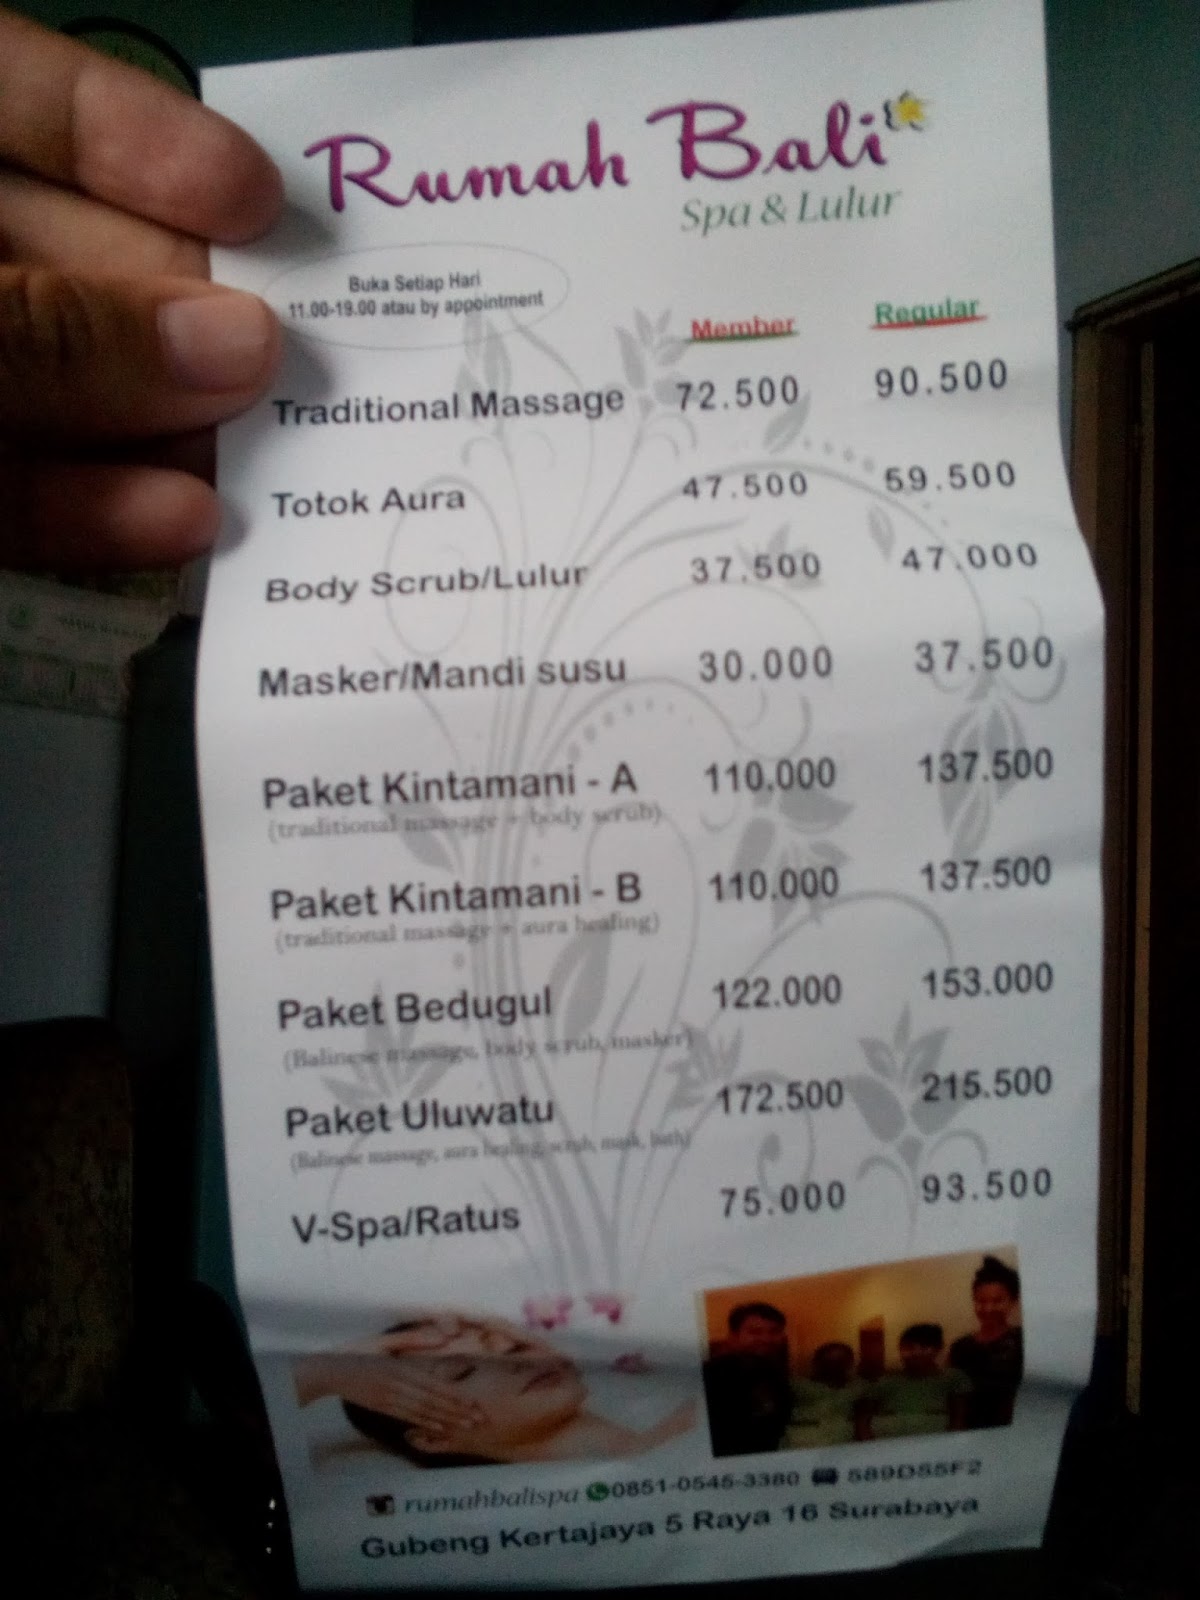 Rumah Bali
Spa & Lulur
Buka Setiap Hari
11.00-19.00 atau by appointment
Member Regular
Traditional Massage 72.500 90.500
Totok Aura 47.500 59.500
Body Scrub/Lulur 37.500 47.000
Masker/Mandi susu 30.000 37.500
Paket Kintamani - A 110.000 137.500
(traditional massage + body scrub)
Paket Kintamani - B 110.000 137.500
(traditional massage + aura healing)
Paket Bedugul 122.000 153.000
(Balinese massage, body scrub, masker)
Paket Uluwatu 172.500 215.500
(Balinese massage, aura healing, scrub, mask, bath)
V-Spa/Ratus 75.000 93.500
rumahbalispa 0851-0545-3380 589D55F2
Gubeng Kertajaya 5 Raya 16 Surabaya